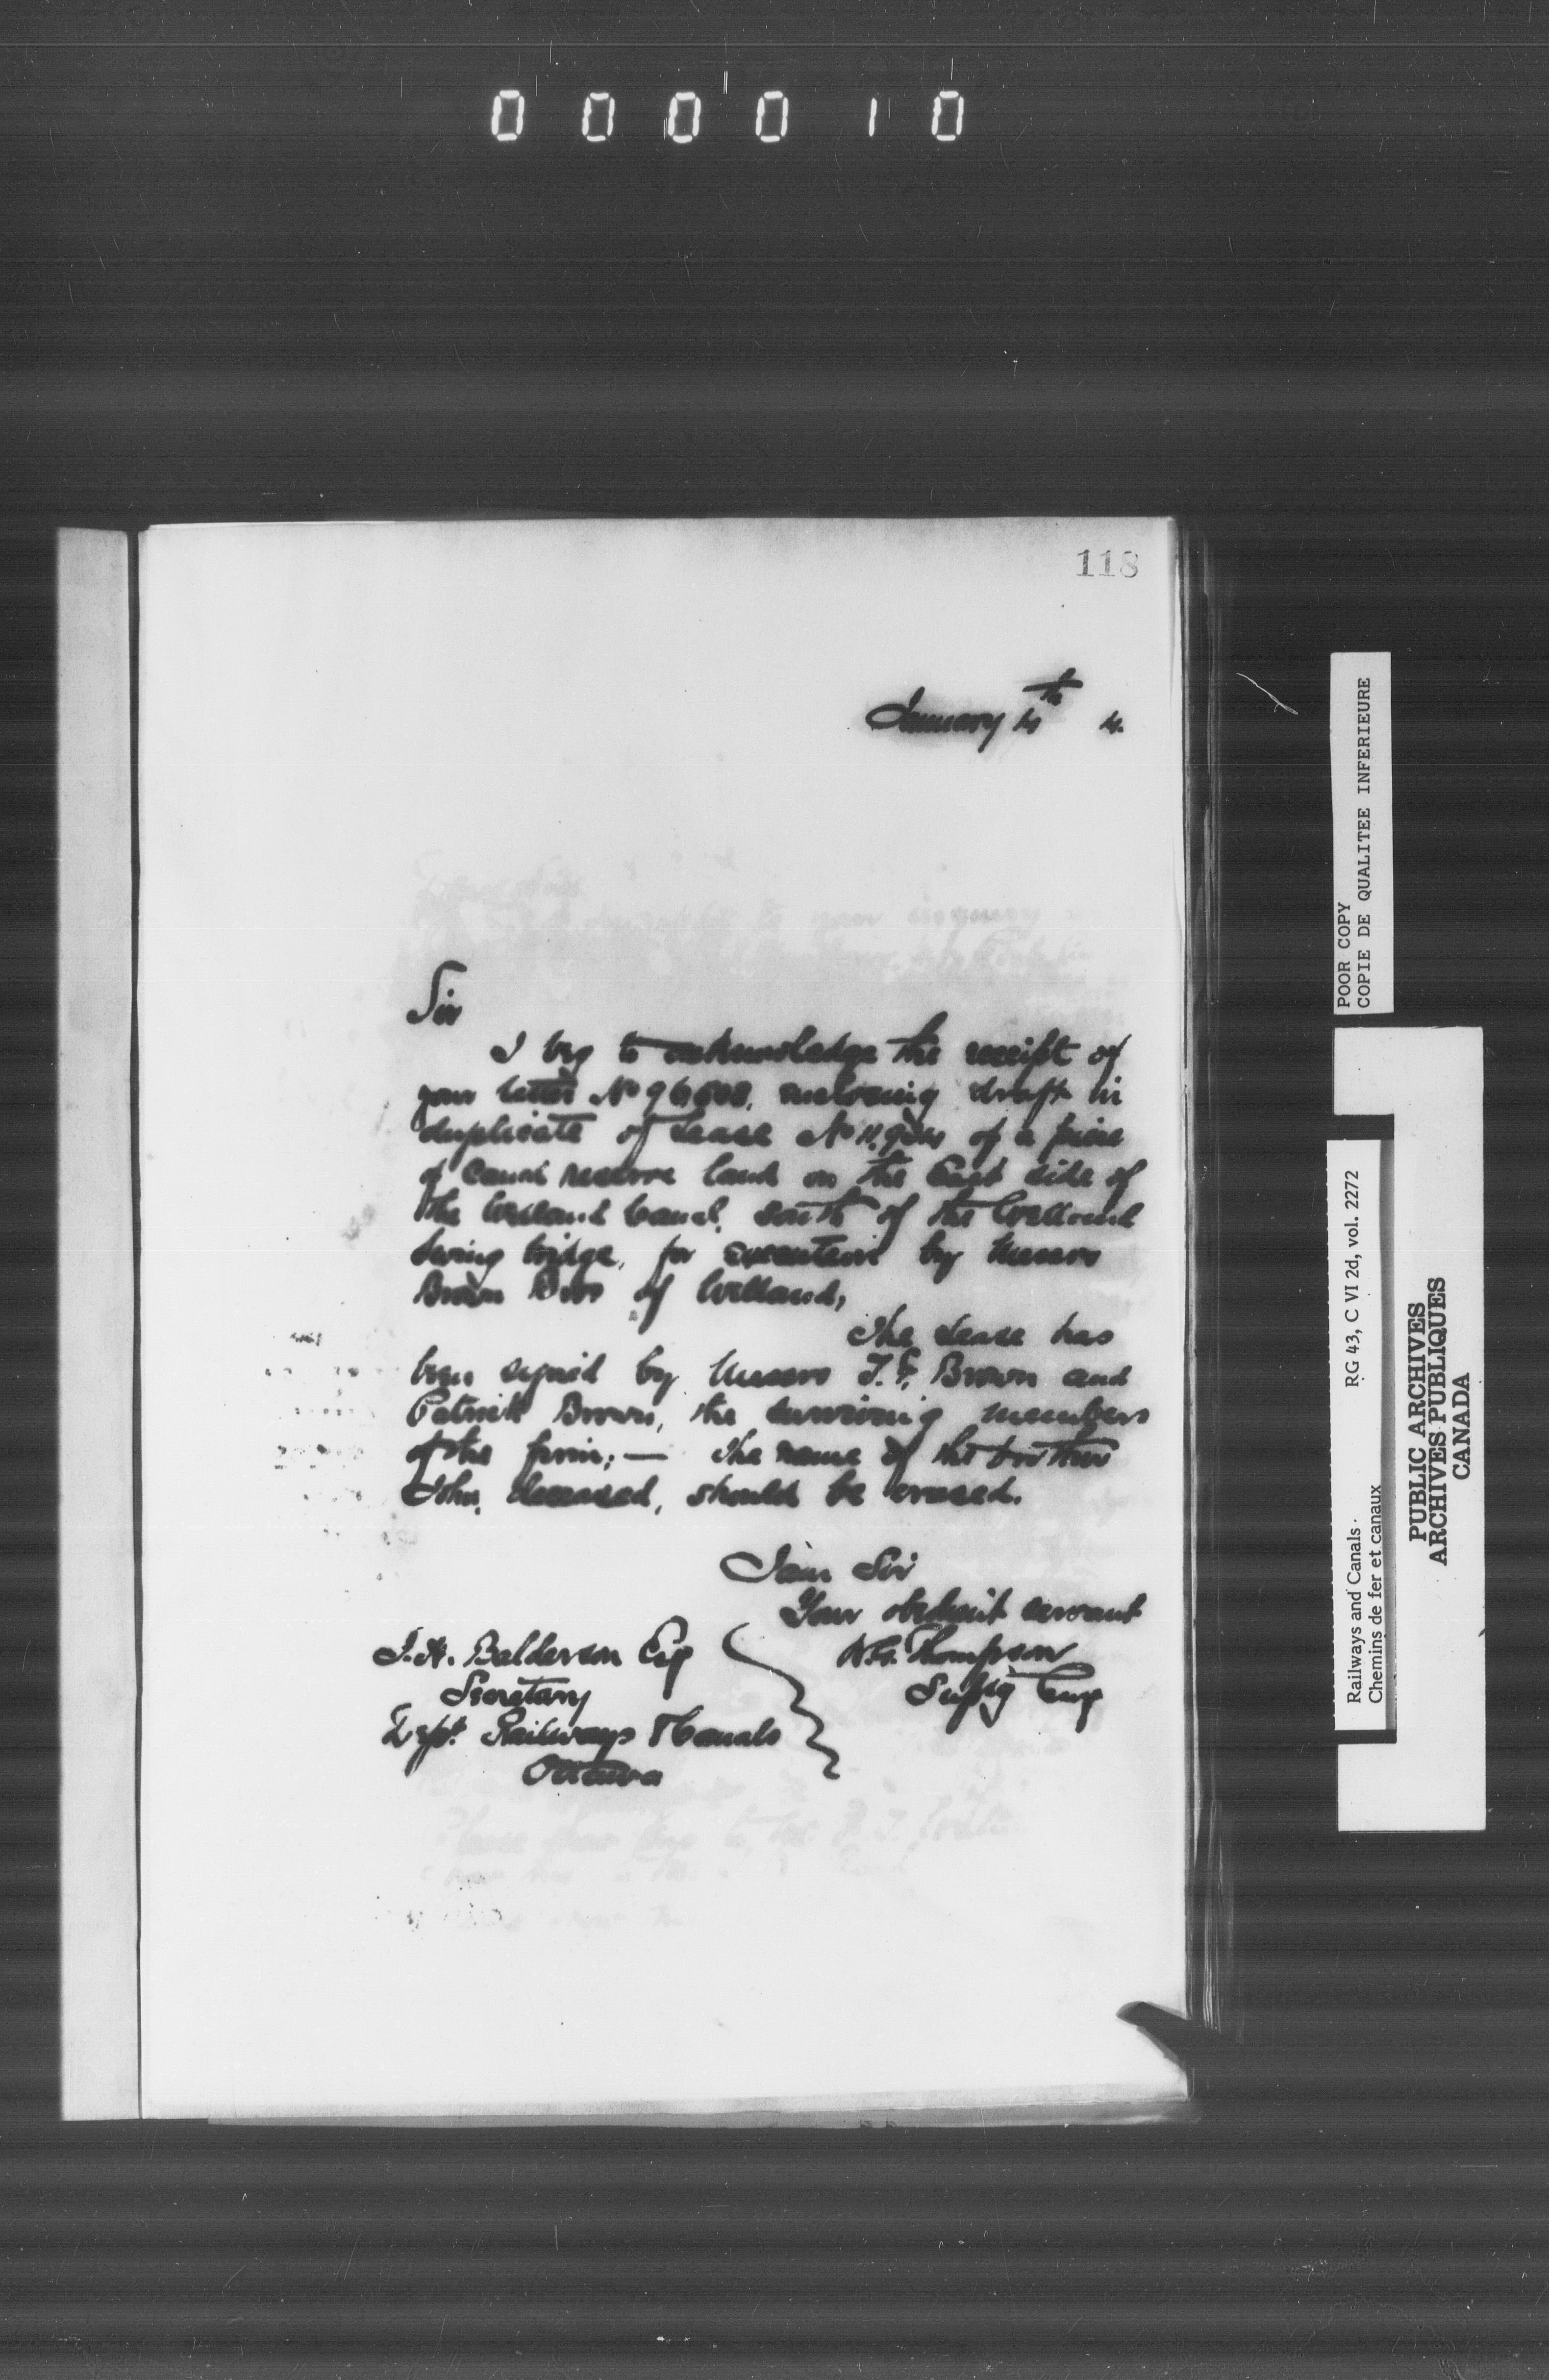 000010
118
January 4th 4.
Sir
I beg to acknowledge the receipt of
your letter No enclosing draft in
duplicate of Lease No of a piece
of Canal reserve land on the East side of
the Welland Canal, South of the Welland
Swing bridge, for execution by Messrs
Brown Bros of Welland,
The Lease has
been signed by Messrs T. F. Brown and
Patrick Brown, the surviving members
of the firm; — the name of the brother
John, deceased, should be erased.
I am Sir
Your obedient servant
W.G. Thompson
Supg Eng
J. H. Balderson Esq
Secretary
Dept. Railways & Canals
Ottawa
POOR COPY
COPIE DE QUALITEE INFERIEURE
Railways and Canals RG 43, C VI 2d, vol. 2272
Chemins de fer et canaux
PUBLIC ARCHIVES
ARCHIVES PUBLIQUES
CANADA